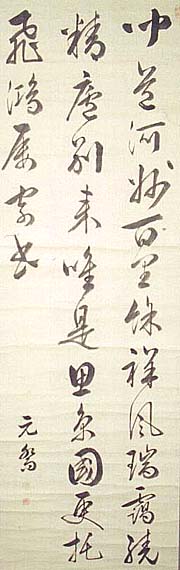 聞道河百里餘祥風瑞靄繞
精廬別來唯是思京國更托
飛鴻屡寄書
元喬